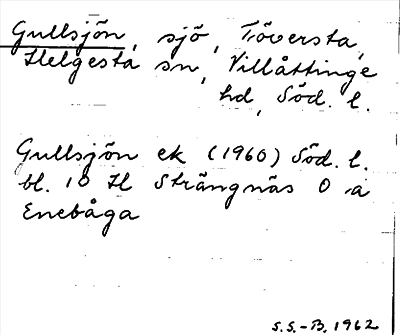 Gullsjön, sjö, Töversta,
Helgesta sn, Villåttinge
hd, Söd. l.
Gullsjön ek (1960) Söd. l.
bl. 10 H Strängnäs O a
Enebåga
S.S.-B. 1962